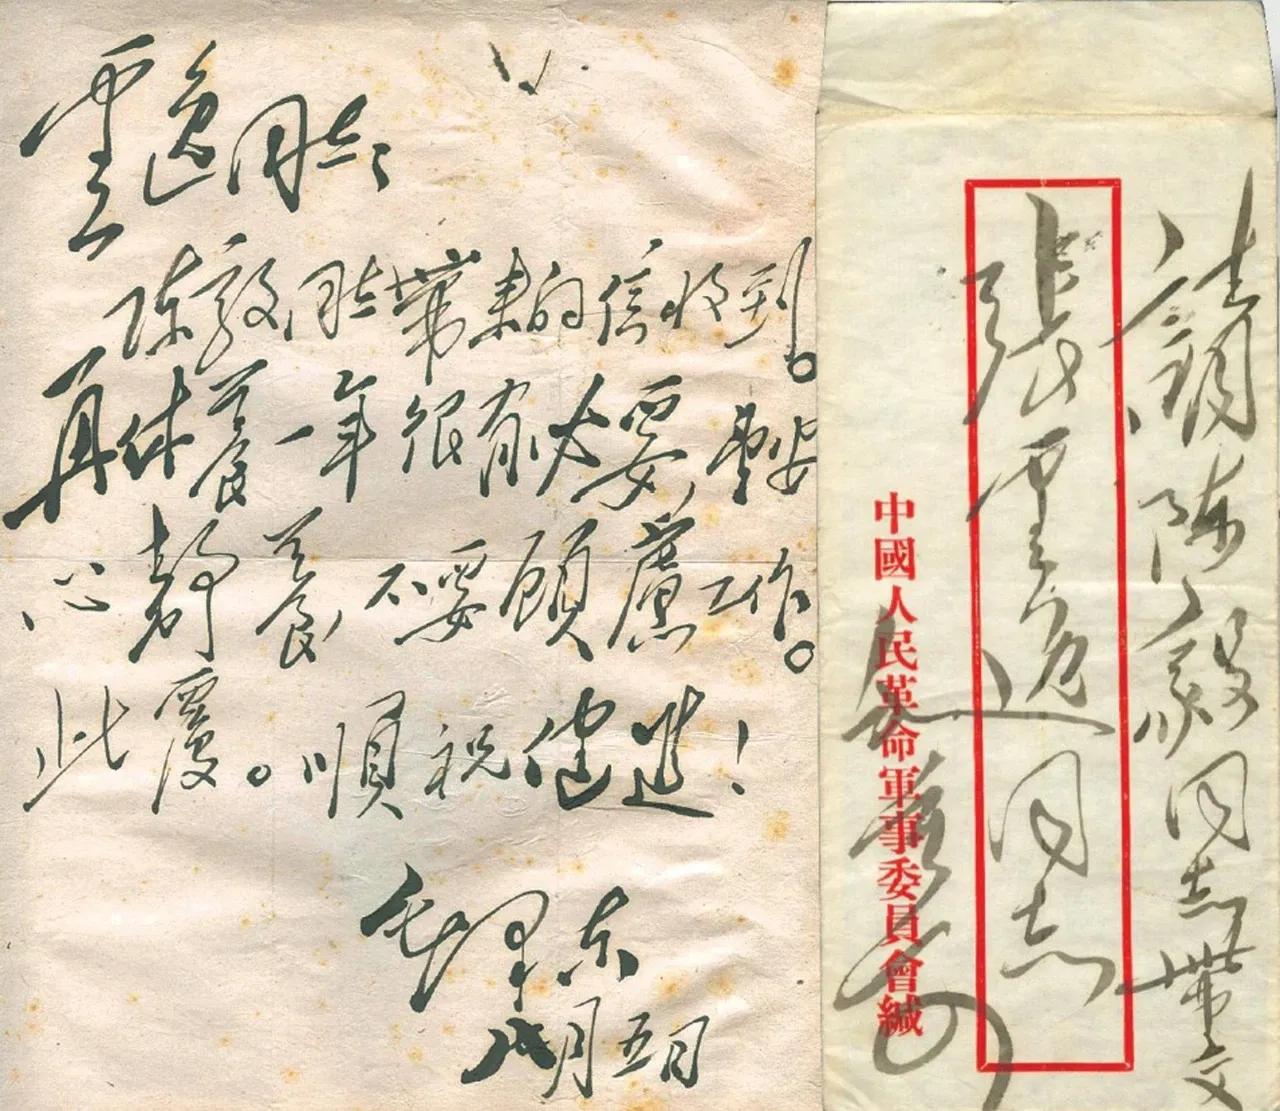 雲逸同志：
陈毅同志带来的信收到。
再休养一年很有必要，要安
心静养，不要顾虑工作。
此覆。順祝健进！
毛泽东
八月五日
請陈毅同志带交
張雲逸同志
中國人民革命軍事委員會緘